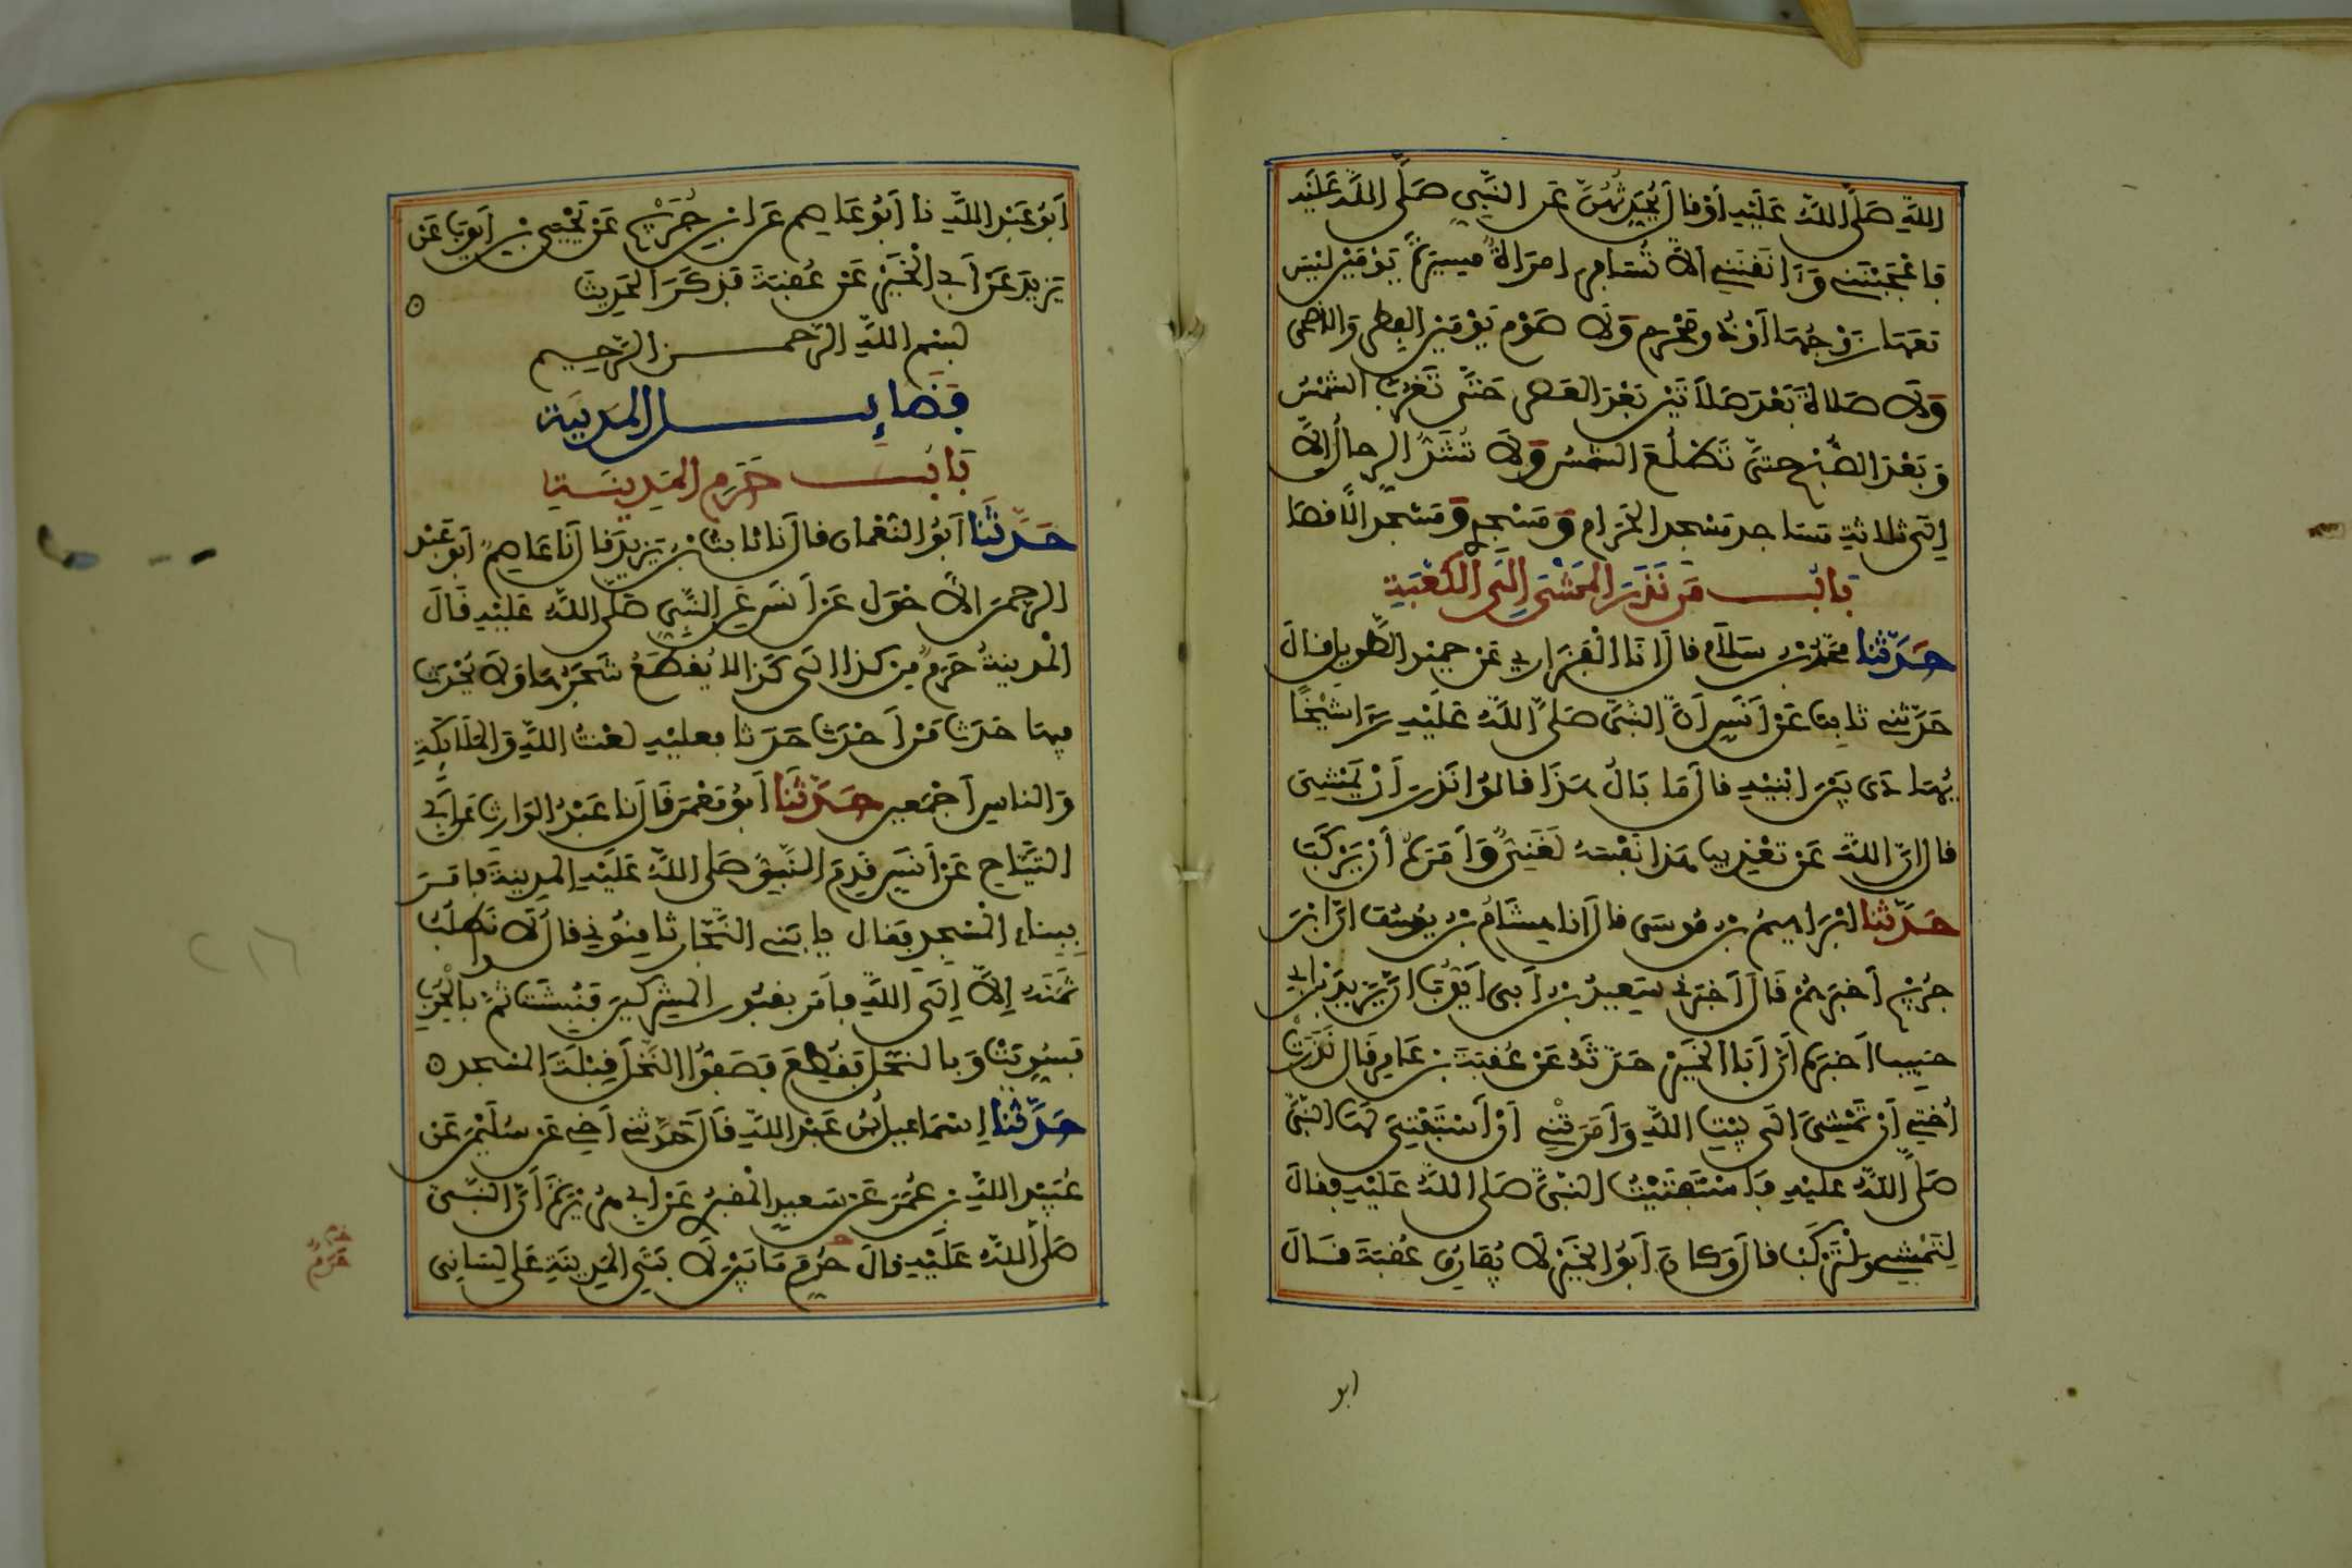 اللَّهِ صَلَّى اللَّهُ عَلَيْهِ أَوْ قَالَ يُحَدِّثُهُنَّ عَنِ النَّبِيِّ صَلَّى اللَّهُ عَلَيْهِ
فَأَعْجَبْنَنِي وَآنَقْنَنِي أَلَّا تُسَافِرَ امْرَأَةٌ مَسِيرَةَ يَوْمَيْنِ لَيْسَ
مَعَهَا زَوْجُهَا أَوْ ذُو مَحْرَمٍ وَلَا صَوْمَ يَوْمَيْنِ الْفِطْرِ وَالْأَضْحَى
وَلَا صَلَاةَ بَعْدَ صَلَاتَيْنِ بَعْدَ الْعَصْرِ حَتَّى تَغْرُبَ الشَّمْسُ
وَبَعْدَ الصُّبْحِ حَتَّى تَطْلُعَ الشَّمْسُ وَلَا تُشَدُّ الرِّحَالُ إِلَّا
إِلَى ثَلَاثَةِ مَسَاجِدَ مَسْجِدِ الْحَرَامِ وَمَسْجِدِي وَمَسْجِدِ الْأَقْصَا
بَابُ مَنْ نَذَرَ الْمَشْيَ إِلَى الْكَعْبَةِ
حَدَّثَنَا مُحَمَّدُ بْنُ سَلَامٍ قَالَ أَنَا الْفَزَارِي عَنْ حُمَيْدٍ الطَّوِيلِ قَالَ
حَدَّثَنِي ثَابِتٌ عَنْ أَنَسٍ أَنَّ النَّبِيَّ صَلَّى اللَّهُ عَلَيْهِ رَأَى شَيْخًا
يُهَادَى بَيْنَ ابْنَيْهِ قَالَ مَا بَالُ هَذَا قَالُوا نَذَرَ أَنْ يَمْشِيَ
قَالَ إِنَّ اللَّهَ عَنْ تَعْذِيبِ هَذَا نَفْسَهُ لَغَنِيٌّ وَأَمَرَهُ أَنْ يَرْكَبَ
حَدَّثَنَا إِبْرَاهِيمُ بْنُ مُوسَى قَالَ أَنَا هِشَامُ بْنُ يُوسُفَ أَنَّ ابْنَ
جُرَيْجٍ أَخْبَرَهُمْ قَالَ أَخْبَرَنِي سَعِيدُ بْنُ أَبِي أَيُّوبَ أَنَّ يَزِيدَ بْنَ أَبِي
حَبِيبٍ أَخْبَرَهُ أَنَّ أَبَا الْخَيْرِ حَدَّثَهُ عَنْ عُقْبَةَ بْنِ عَامِرٍ قَالَ نَذَرَتْ
أُخْتِي أَنْ تَمْشِيَ إِلَى بَيْتِ اللَّهِ وَأَمَرَتْنِي أَنْ أَسْتَفْتِيَ لَهَا النَّبِيَّ
صَلَّى اللَّهُ عَلَيْهِ فَاسْتَفْتَيْتُ النَّبِيَّ صَلَّى اللَّهُ عَلَيْهِ فَقَالَ
لِتَمْشِي وَلْتَرْكَبْ قَالَ وَكَانَ أَبُو الْخَيْرِ لَا يُفَارِقُ عُقْبَةَ قَالَ
ابو
أَبُو عَبْدِ اللَّهِ نا أَبُو عَاصِمٍ عَنِ ابْنِ جُرَيْجٍ عَنْ يَحْيَى بْنِ أَيُّوبَ عَنْ
يَزِيدَ عَنْ أَبِي الْخَيْرِ عَنْ عُقْبَةَ فَذَكَرَ الْحَدِيثَ
بسم الله الرحمن الرحيم
فَضَائِل الْمَدِينَةِ
بَابُ حَرَمِ الْمَدِينَةِ
حَدَّثَنَا أَبُو النُّعْمَانِ قَالَ نَا ثَابِتُ بْنُ يَزِيدَ قَالَ نَا عَاصِمٌ أَبُو عَبْدِ
الرَّحْمَنِ الْأَحْوَلِ عَنْ أَنَسٍ عَنِ النَّبِيِّ صَلَّى اللَّهُ عَلَيْهِ قَالَ
الْمَدِينَةُ حَرَمٌ مِنْ كَذَا إِلَى كَذَا لَا يُقْطَعُ شَجَرُهَا وَلَا يُحْدَثُ
فِيهَا حَدَثٌ مَنْ أَحْدَثَ حَدَثًا فَعَلَيْهِ لَعْنَتُ اللَّهِ وَالْمَلَائِكَةِ
وَالنَّاسِ أَجْمَعِينَ حَدَّثَنَا أَبُو مَعْمَرٍ قَالَ نَا عَبْدُ الْوَارِثِ عَنْ أَبِي
التَّيَّاحِ عَنْ أَنَسٍ قَدِمَ النَّبِيُّ صَلَّى اللَّهُ عَلَيْهِ الْمَدِينَةَ فَأَمَرَ
بِبِنَاءِ الْمَسْجِدِ فَقَالَ يَا بَنِي النَّجَّارِ ثَامِنُونِي قَالُوا لَا نَطْلُبُ
ثَمَنَهُ إِلَّا إِلَى اللَّهِ فَأَمَرَ بِقُبُورِ الْمُشْرِكِينَ فَنُبِشَتْ ثُمَّ بِالْخِرَبِ
فَسُوِّيَتْ وَبِالنَّخْلِ فَقُطِعَ فَصَفُّوا النَّخْلَ قِبْلَةَ الْمَسْجِدِ
حَدَّثَنَا إِسْمَاعِيلُ بْنُ عَبْدِ اللَّهِ قَالَ حَدَّثَنِي أَخِي عَنْ سُلَيْمَنَ عَنْ
عُبَيْدِ اللَّهِ بْنِ عُمَرَ عَنْ سَعِيدٍ الْمَقْبُرِيِّ عَنْ أَبِي هُرَيْرَةَ أَنَّ النَّبِيَّ
صَلَّى اللَّهُ عَلَيْهِ قَالَ حُرِّمَ مَا بَيْنَ لَابَتَيِ الْمَدِينَةِ عَلَى لِسَانِي
حَرَمٌ